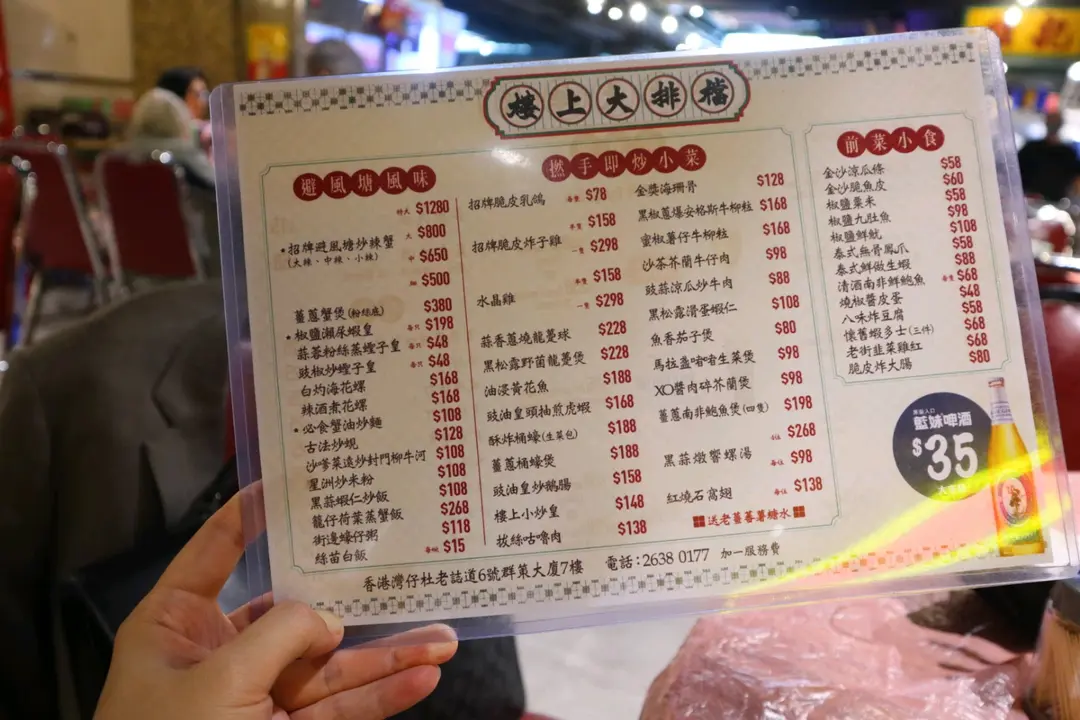 樓上大排檔
避風塘風味
特大 $1280
大 $800
•招牌避風塘炒辣蟹
(大辣、中辣、小辣)
中 $650
細 $500
薑蔥蟹煲(粉絲底) $380
•椒鹽瀨尿蝦皇 每只 $198
蒜蓉粉絲蒸蟶子皇 每只 $48
豉椒炒蟶子皇 每只 $48
白灼海花螺 $168
辣酒煮花螺 $168
•必食蟹油炒麵 $108
古法炒蜆 $128
沙嗲菜遠炒封門柳牛河 $108
星洲炒米粉 $108
黑蒜蝦仁炒飯 $108
籠仔荷葉蒸蟹飯 $268
街邊蠔仔粥 $118
絲苗白飯 每碗 $15
撚手即炒小菜
招牌脆皮乳鴿 每隻 $78
半隻 $158
招牌脆皮炸子雞 一隻 $298
半隻 $158
水晶雞 一隻 $298
蒜香蔥燒龍躉球 $228
黑松露野菌龍躉煲 $228
油浸黃花魚 $188
豉油皇頭抽煎虎蝦 $168
酥炸桶蠔(生菜包) $188
薑蔥桶蠔煲 $188
豉油皇炒鵝腸 $158
樓上小炒皇 $148
拔絲咕嚕肉 $138
金獎海珊骨 $128
黑椒蔥爆安格斯牛柳粒 $168
蜜椒薯仔牛柳粒 $168
沙茶芥蘭牛仔肉 $98
豉蒜涼瓜炒牛肉 $88
黑松露滑蛋蝦仁 $108
魚香茄子煲 $80
馬拉盞啫啫生菜煲 $98
XO醬肉碎芥蘭煲 $98
薑蔥南非鮑魚煲(四隻) $198
$268
黑蒜燉響螺湯 每位 $98
紅燒石窩翅 每位 $138
送老薑番薯糖水
前菜小食
金沙涼瓜條 $58
金沙脆魚皮 $60
椒鹽粟米 $58
椒鹽九肚魚 $98
椒鹽鮮魷 $108
泰式無骨鳳爪 $58
泰式鮮做生蝦 $88
清酒南非鮮鮑魚 每隻 $68
燒椒醬皮蛋 $48
八味炸豆腐 $58
懷舊蝦多士(三件) $68
老街韭菜雞紅 $68
脆皮炸大腸 $80
原裝入口
藍妹啤酒
$35
香港灣仔杜老誌道6號群策大廈7樓 電話:2638 0177 加一服務費